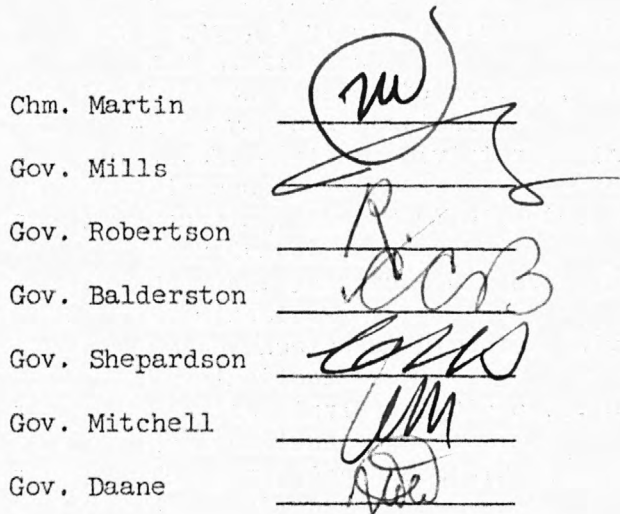 Chm. Martin M
Gov. Mills
Gov. Robertson R
Gov. Balderston CCB
Gov. Shepardson
Gov. Mitchell GWM
Gov. Daane